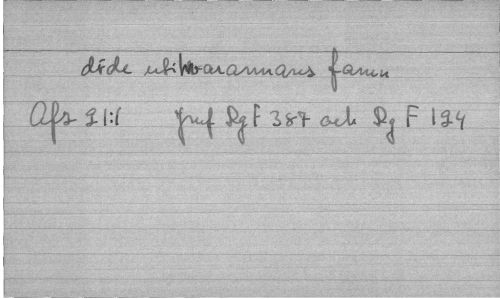 döde uti hvarannans famn
Afz 91:1 jemf Rg F 387 och Rg F 194